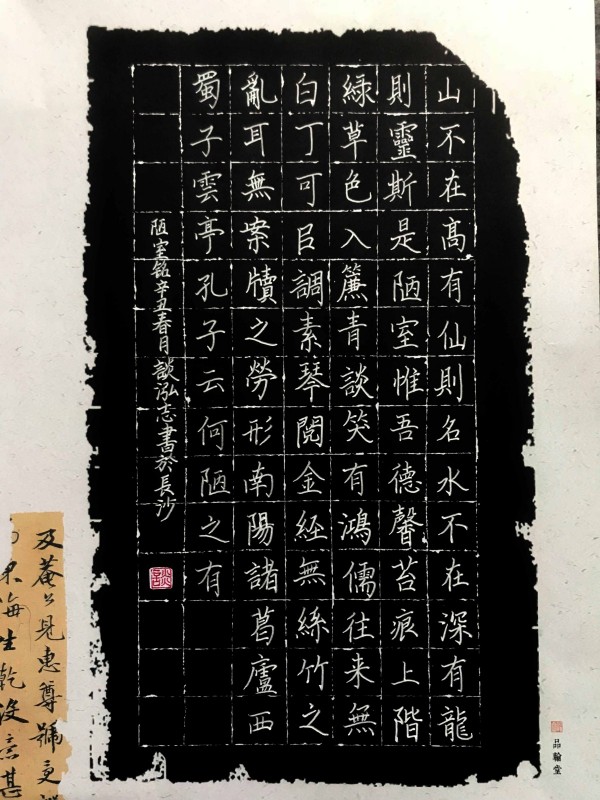 山不在髙有仙則名水不在深有龍
則靈斯是陋室惟吾德馨苔痕上階
綠草色入簾青談笑有鴻儒往来無
白丁可㠯調素琴閱金經無絲竹之
亂耳無案牘之勞形南陽諸葛廬西
蜀子雲亭孔子云何陋之有
陋室銘辛丑春月談泓志書於長沙
及菴公見惠尊號更
海生乾没意甚
品翰堂